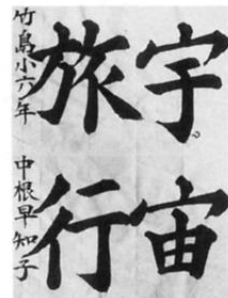 宇宙
旅行
竹島小六年 中根早知子